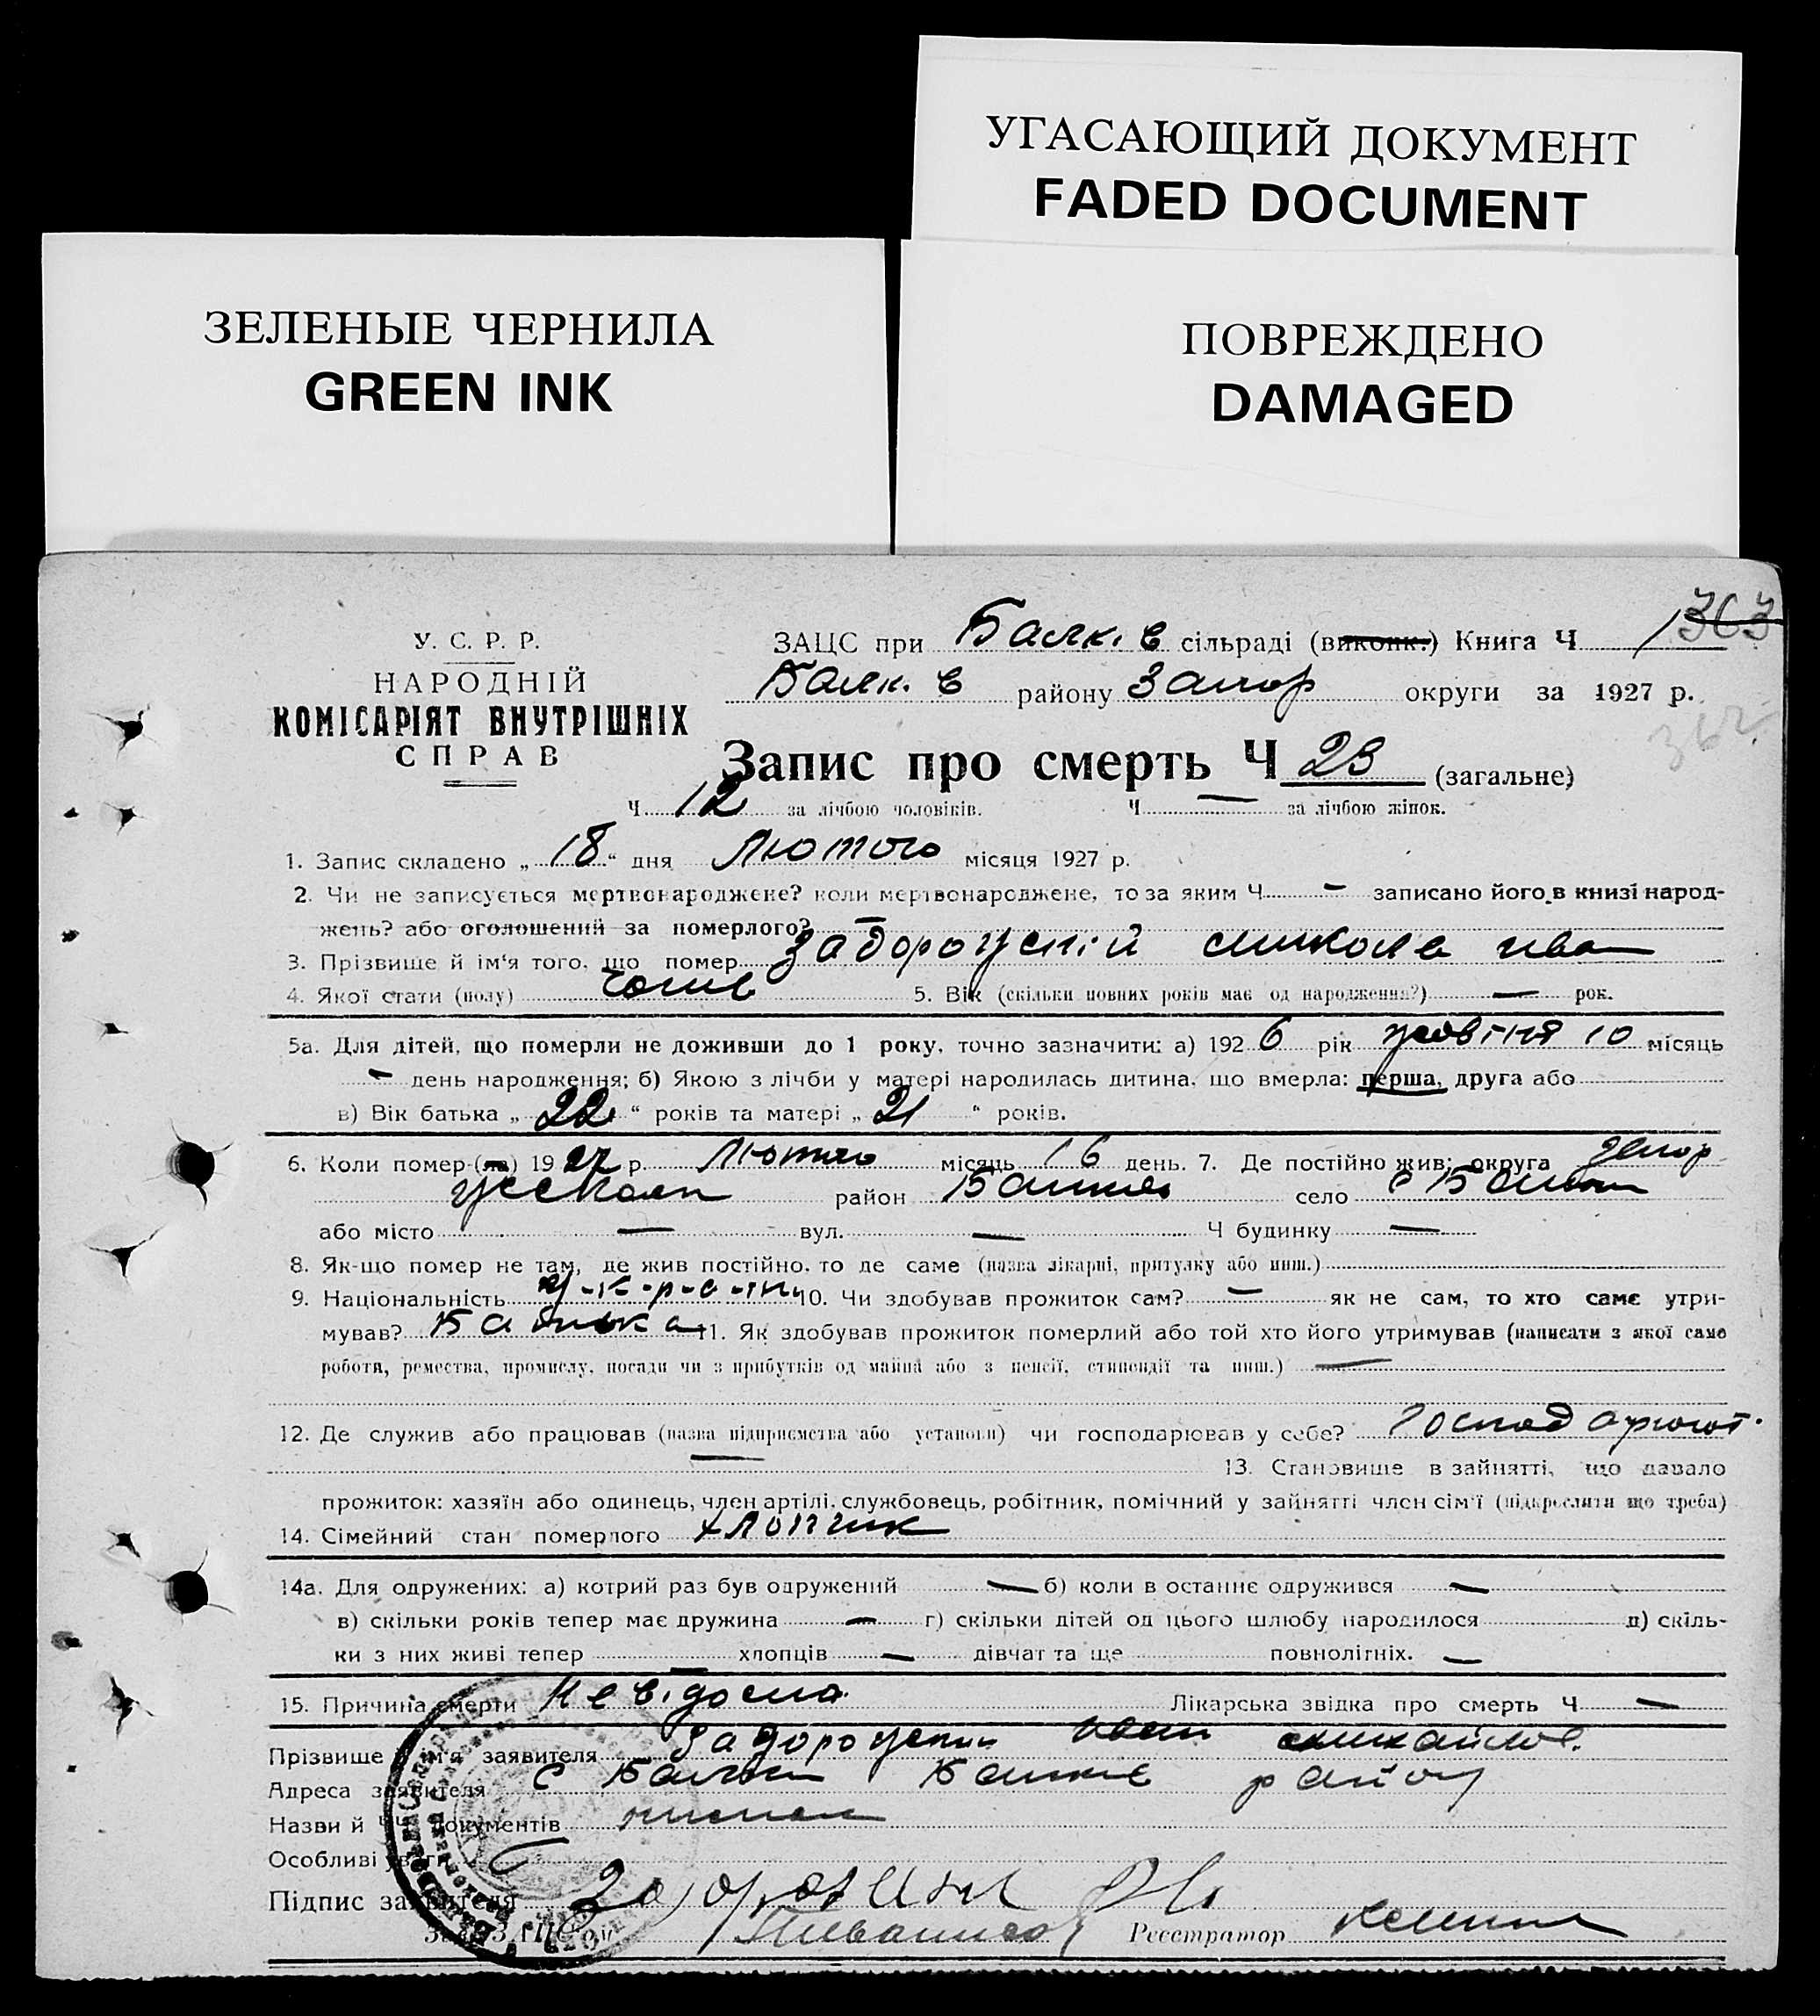 УГАСАЮЩИЙ ДОКУМЕНТ
FADED DOCUMENT
ЗЕЛЕНЫЕ ЧЕРНИЛА
GREEN INK
ПОВРЕЖДЕНО
DAMAGED
У. С. Р. Р.
НАРОДНІЙ
КОМІСАРІЯТ ВНУТРІШНІХ
СПРАВ
ЗАЦС при Балк. в сільраді (виконк.) Книга Ч 1 363
Балк. в району Запор округи за 1927 р.
362
Запис про смерть Ч 23 (загальне)
Ч 12 за лічбою чоловіків. Ч — за лічбою жінок.
1. Запис складено „ 18 “ дня Лютого місяця 1927 р.
2. Чи не записується мертвонароджене? коли мертвонароджене, то за яким Ч — записано його в книзі народ-
жень? або оголошений за померлого? —
3. Прізвище й ім'я того, що помер Задорожній Микола Іва
4. Якої стати (полу) Чолов 5. Вік (скільки повних років має од народження?) — рок.
5а. Для дітей, що померли не доживши до 1 року, точно зазначити: а) 1926 рік жовтня 10 місяць
— день народження; б) Якою з лічби у матері народилась дитина, що вмерла: перша, друга або
в) Вік батька „ 22 “ років та матері „ 21 “ років.
6. Коли помер (ла) 1927 р. Лютого місяць 16 день. 7. Де постійно жив: округа Запор
район село с Балки
або місто — вул. — Ч будинку —
8. Як-що помер не там, де жив постійно, то де саме (назва лікарні, притулку або инш.)
9. Національність 10. Чи здобував прожиток сам? — як не сам, то хто саме утри-
мував? Батька 11. Як здобував прожиток померлий або той хто його утримував (написати з якої саме
роботи, ремества, промислу, посади чи з прибутків од майна або з пенсії, стипендії та инш.) —
12. Де служив або працював (назва підприємства або установи) чи господарював у себе? Господ
— 13. Становище в зайнятті, що давало
прожиток: хазяїн або одинець, член артілі, службовець, робітник, помічний у зайнятті член сім'ї (підкреслити що треба)
14. Сімейний стан померлого хлопчик
14а. Для одружених: а) котрий раз був одружений — б) коли в останнє одружився —
в) скільки років тепер має дружина — г) скільки дітей од цього шлюбу народилося д) скіль-
ки з них живі тепер — хлопців — дівчат та ще повнолітніх. —
15. Причина смерти Невідома Лікарська звідка про смерть Ч —
Прізвище й ім'я заявителя Задорожний Иван Михайлов.
Адреса заявителя с Балки Балків району
Назви й ЧЧ документів
Особливі уваги
Підпис заявителя
Зав. ЗАЦС'ом Реєстратор